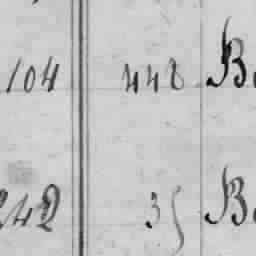 104 448 B
242 35 B